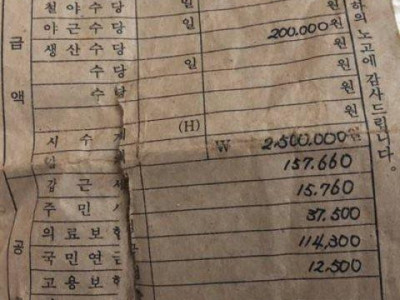 금 액
철 야 수 당 일 원
야 근 수 당 일 200,000 원
생 산 수 당 원
수 당 일 원
수 당 원
원
계 (H) W 2,500,000 원
갑 근 세 157,660
주 민 15,760
의 료 보 험 37,500
국 민 연 금 114,300
고 용 보 험 12,500
공
하의 노고에 감사드립니다.